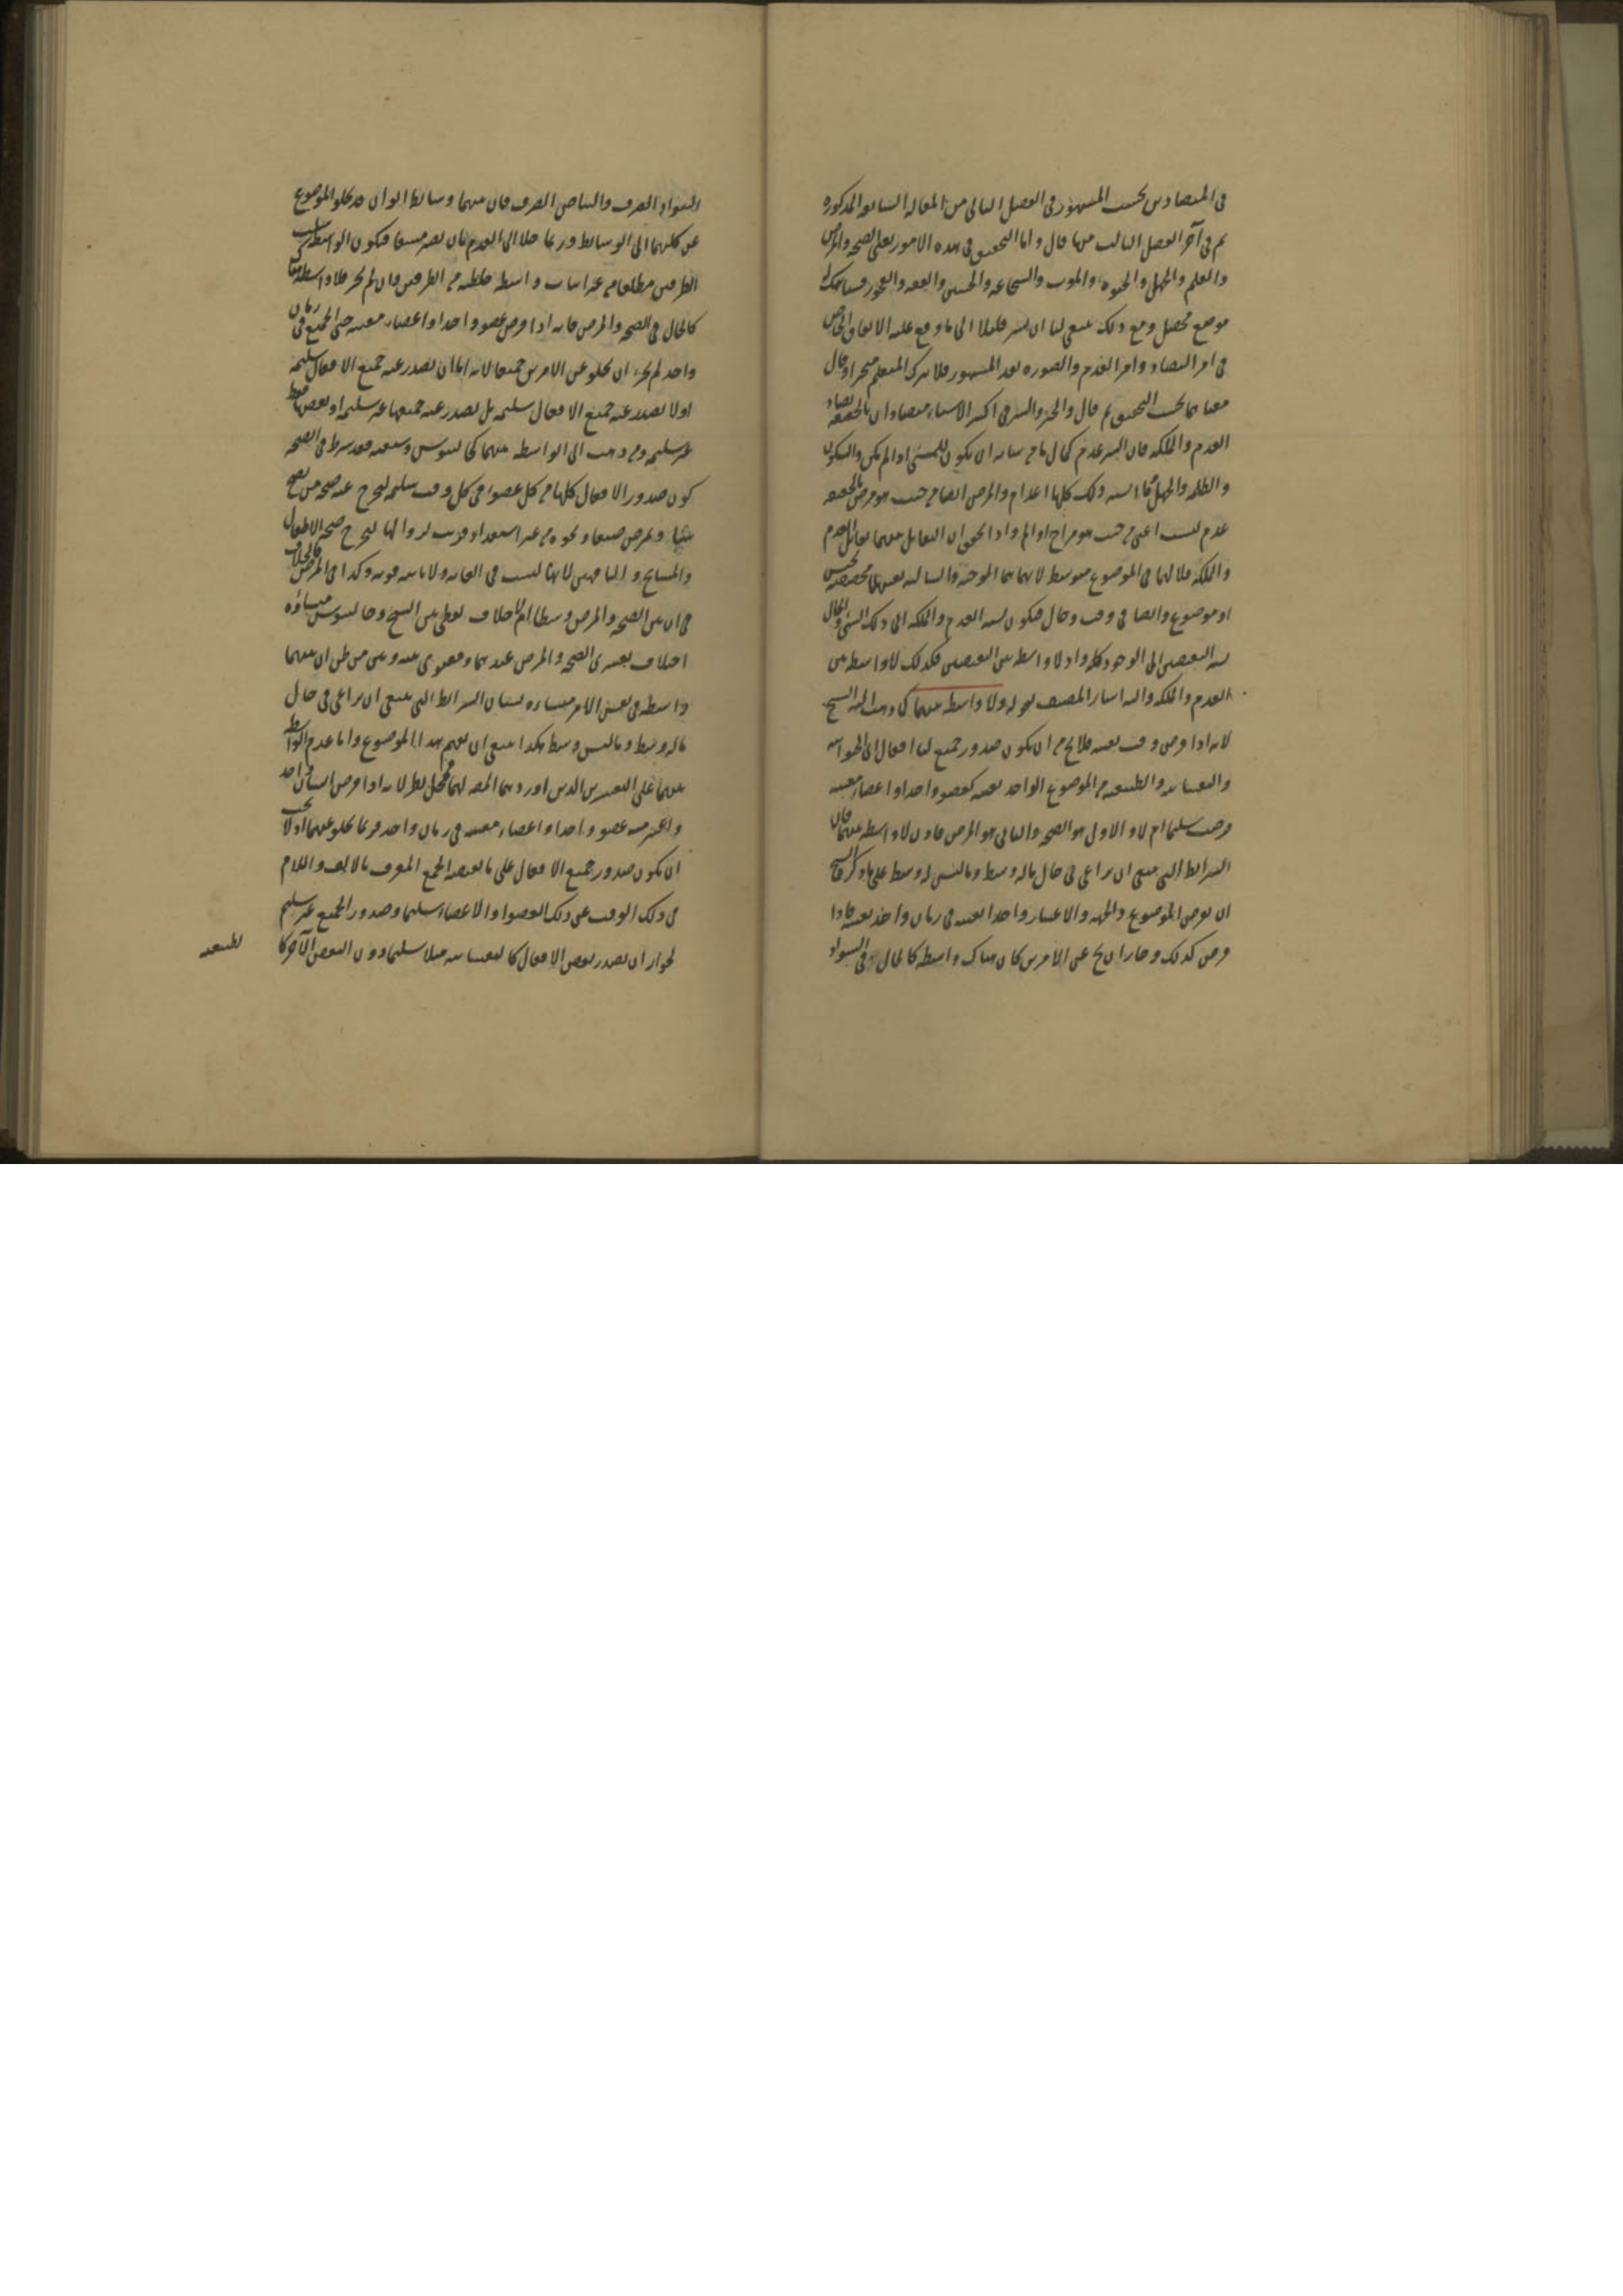 فى المتضادين بحسب المشهور فى الفصل الثانى من المقالة السابعة المذكورة
ثم فى آخر الفصل الثالث منها قال واما التحقيق فى هذه الامور يعنى الصحة والمرض
والعلم والجهل والحيوة والموت والشجاعة والجبن والعفة والفجور فسيأتيك له
موضع محصل ومع ذلك ينبغى لنا ان نشير قليلا الى ما وقع عليه الاتفاق الخاص
فى امر التضاد وامر العدم والصورة بعد المشهور فلا نترك المتعلم متحيرا وقال
معناهما بحسب التحقيق ثم قال والخير والشر فى اكثر الاشياء متضادان بالحقيقة تضاد
العدم والملكة فان الشر عدم كمال ما من شانه ان يكون للشئ اذا لم يكن والسكون
والظلمة والجهل وما اشبه ذلك كلها اعدام والمرض ايضا من حيث هو مرض بالحقيقة
عدم لست اعنى من حيث هو مزاج او الم واذا تحقق ان التقابل بينهما تقابل العدم
والملكة فلا لهما فى الموضوع متوسط لانهما هما الموجبة والسالبة بعينهما مخصصة بجنس
او موضوع وايضا فى وقت وحال فيكون نسبة العدم والملكة الى ذلك الشئ والحال
نسبة النقيضين الى الوجود كله واذ لا واسطة بين النقيضين فكذلك لا واسطة بين
العدم والملكة واليه اشار المصنف بقوله ولا واسطة بينهما كما ذهب اليه الشيخ
لانه اذا فرض وقت بعينه فلا يخ من ان يكون صدور جميع الافعال اى الحيوانية
والنفسانية والطبيعية من الموضوع الواحد بعينه كعضو واحد او اعضاء معينة
فرضت سليما ام لا والاول هو الصحة والثانى هو المرض فاذن لا واسطة بينهما فان
الشرائط التى ينبغى ان يراعى فى حال ما له وسط وما ليس له وسط على ما ذكر الشيخ
ان يفرض الموضوع والجهة والاعتبار واحدا بعينه فى زمان واحد بعينه فاذا
فرض كذلك وجاز ان يخ عن الامرين كان هناك واسطة كالحال فى السواد
السواد الصرف والبياض الصرف فان بينهما وسائط الوان قد يخلو الموضوع
عن كليهما الى الوسائط وربما خلا الى العدم بان يصير مشفا فيكون الواسطة سلب
الطرفين مطلقا من غير اثبات واسطة خلطية من الطرفين وان لم يجز فلا واسطة
كالحال فى الصحة والمرض فانه اذا فرض عضو واحد او اعضاء معينة حتى الجميع فى زمان
واحد لم يجز ان يخلو عن الامرين جميعا لانه اما ان يصدر عنه جميع الافعال سليمة
اولا يصدر عنه جميع الافعال سليمة بل يصدر عنه جميعها غير سليمة او بعضها فقط
غير سليمة ومن ذهب الى الواسطة بينهما كجالينوس وشيعته فقد شرط فى الصحة
كون صدور الافعال كلها من كل عضو فى كل وقت سليمة ليخرج عنه صحة من يصح
شتاء ويمرض صيفا ونحوه من غير استعداد قريب لزوالها ليخرج صحة الاطفال
والمشايخ والناقهين لانها ليست فى الغاية ولا ثابتة قوية وكذا فى المرض فالخلاف
فى ان بين الصحة والمرض وسطا ام لا خلاف لفظى بين الشيخ وجالينوس منشاؤه
اختلاف تفسيرى الصحة والمرض عندهما ومعنوى بينه وبين من ظن ان بينهما
واسطة فى نفس الامر منشاؤه نسيان الشرائط التى ينبغى ان يراعى فى حال
ما له وسط وما ليس وسط هكذا ينبغى ان يفهم هذا الموضوع واما عدم الواسطة
بينهما على التفسيرين الذين اوردهما المص لهما فمحل نظر لانه اذا فرض انسان واحد
واعتبر منه عضو واحد او اعضاء معينة فى زمان واحد فربما يخلو عنهما اذ لا يجب
ان يكون صدور جميع الافعال على ما يفيده الجمع المعرف بالالف واللام
فى ذلك الوقت عن ذلك العضو او الاعضاء سليما وصدور الجميع غير سليم
لجواز ان يصدر بعض الافعال كالنفسانية مثلا سليما دون البعض الآخر كا
لطبيعية